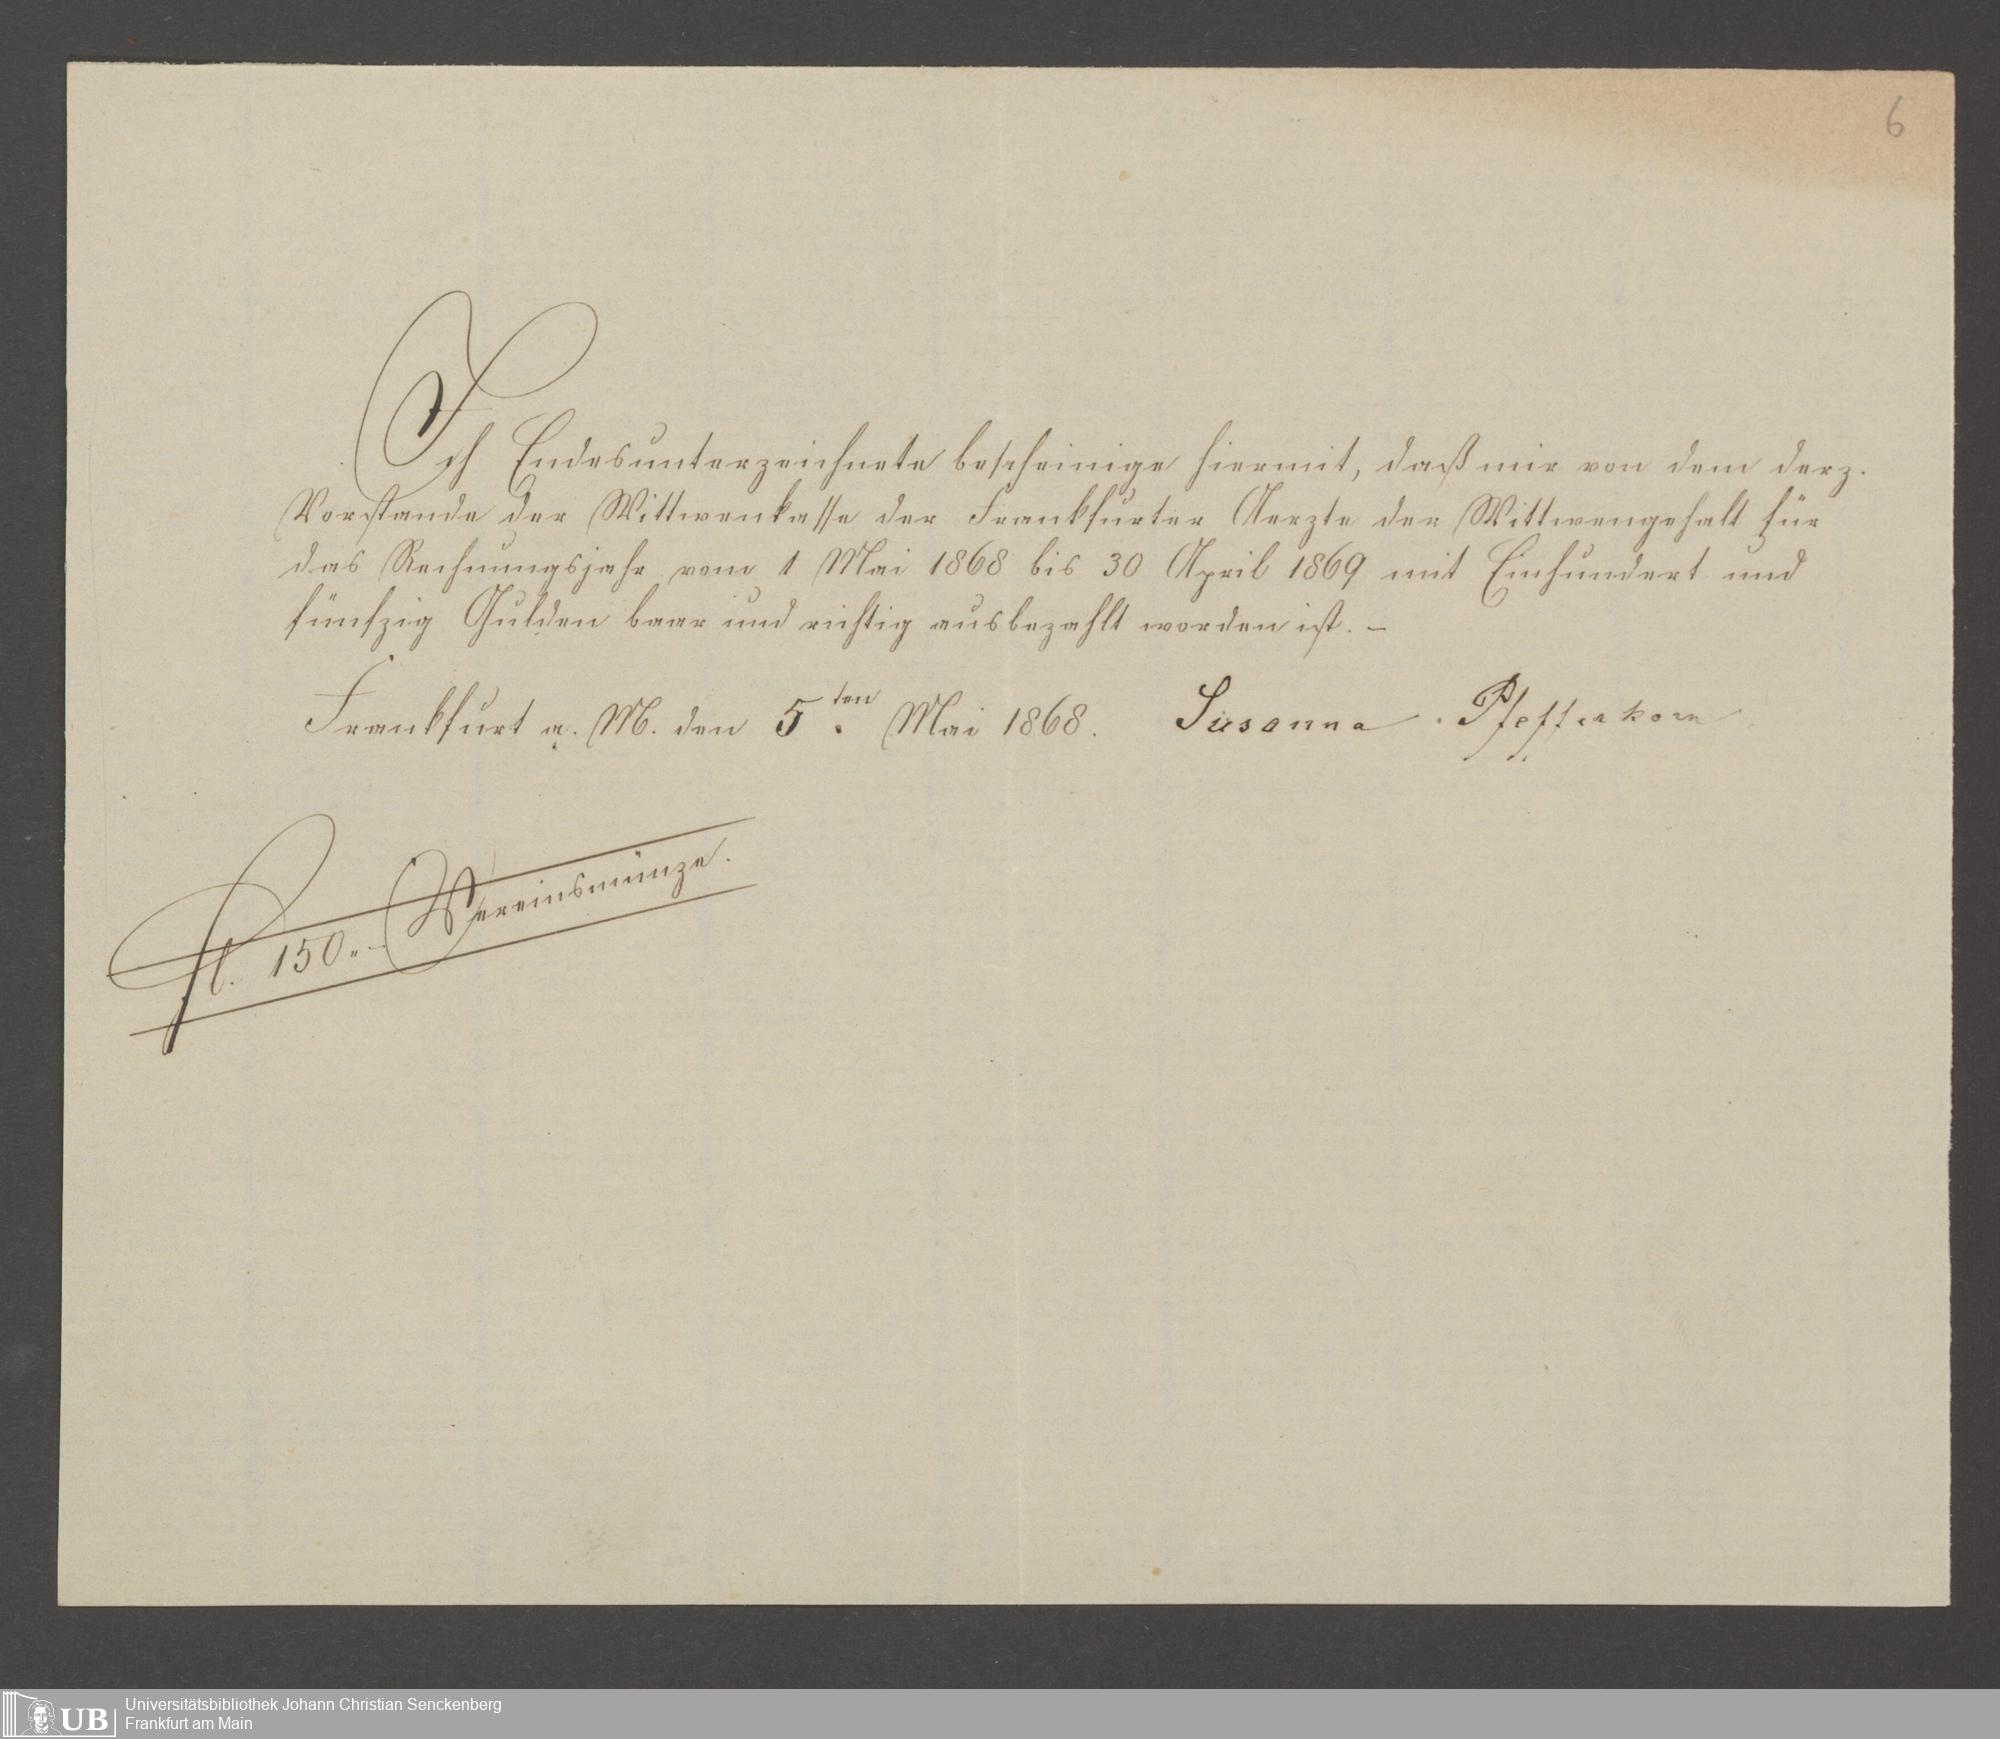 6
Ich Endesunterzeichnete bescheinige hiermit, daß mir von dem derz.
Vorstande der Wittwenkasse der Frankfurter Aerzte der Wittwengehalt für
das Rechnungsjahr vom 1 Mai 1868 bis 30 April 1869 mit Einhundert und
fünfzig Gulden baar und richtig ausbezahlt worden ist. –
Frankfurt a. M. den 5.ten Mai 1868. Susanna Pfefferkorn
fl. 150„– Vereinsmünze.
UB
Universitätsbibliothek Johann Christian Senckenberg
Frankfurt am Main